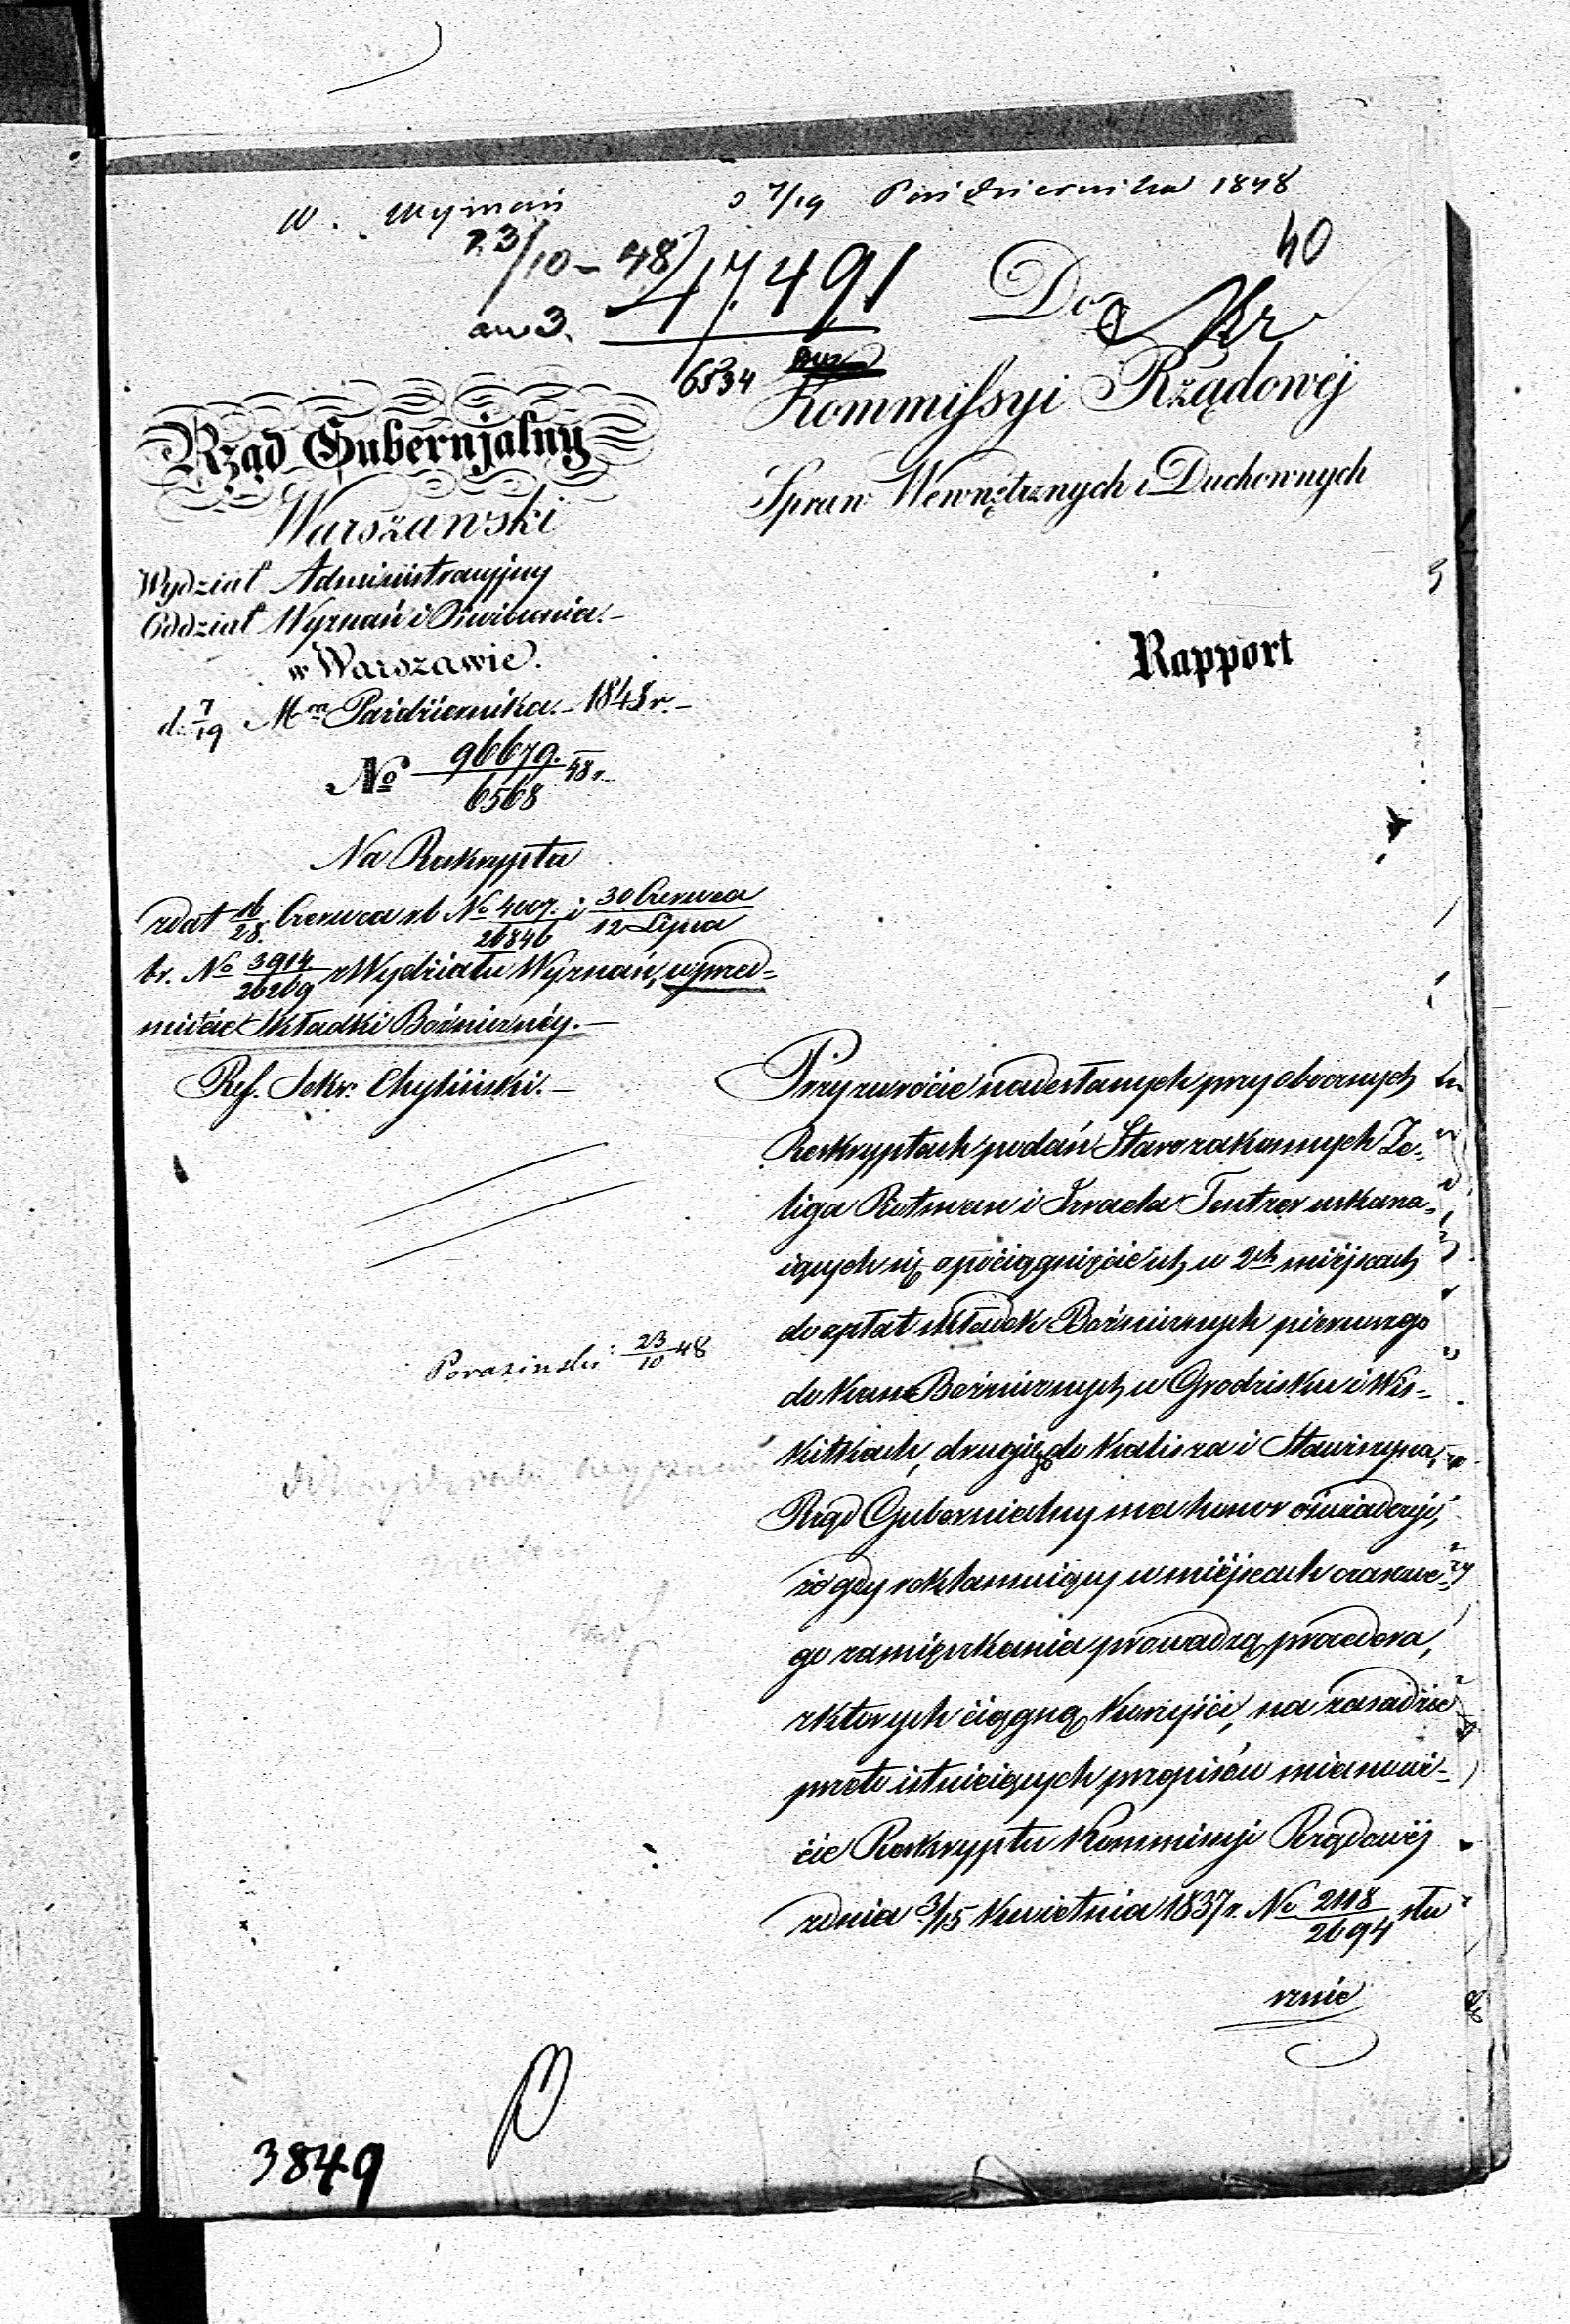 W. Wyznań
d 7/19 Października 1848
23/10 – 48
40
47.491
6534
Do
Kommissyi Rządowéj
Spraw Wewnętrznych i Duchownych
Rząd Gubernjalny
Warszawski
Wydział Administracyjny
Oddział Wyznań i Oświecenia.–
w Warszawie.
d. 7/19 Mca Października.– 1848 r.–
No 96679./6568 48 r.
Rapport
Na Reskrypta
z dat 16/28 Czerwca rb No 4007./26846 i 30 Czerwca/12 Lipca
br. No 3914/26269 z Wydziału Wyznań, w przed-
miocie Składki Bóżnicznéy.–
Ref. Sekr. Chyliński.–
Przy zwrócie nadesłanych przy obocznych
Reskryptach podań Starozakonnych Ze-
liga Rotman i Izraela Tentzer uskarża-
iących się o pociągnięcie ich w 2ch miéjscach
do opłat składek Bóżnicznych pierwszego
do kass Bóżnicznych w Grodzisku i Wis-
kitkach, drugiego do Kalisza i Stawiszyna,
Rząd Gubernialny ma honor oświadczyć,
że gdy reklamuiący w miéjscach czasowe-
go zamięszkania prowadzą procedera,
z których ciągną korzyści, na zasadzie
przeto istnieiących przepisów mianowi-
cie Reskryptu Kommissyi Rządowéj
z dnia 3/15 Kwietnia 1837 r. No 2118/2694 słu
sznie
Porazinski 23/10 48
3849